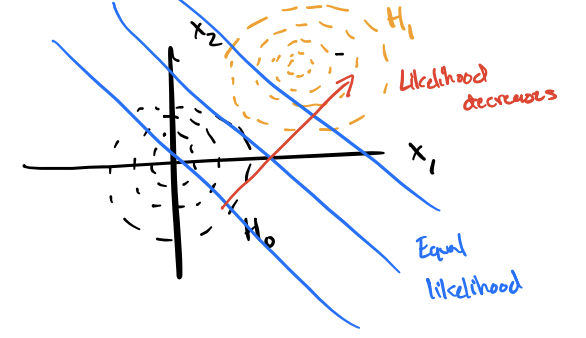 H₁
x₂
Likelihood
decreases
x₁
H₀
Equal
likelihood